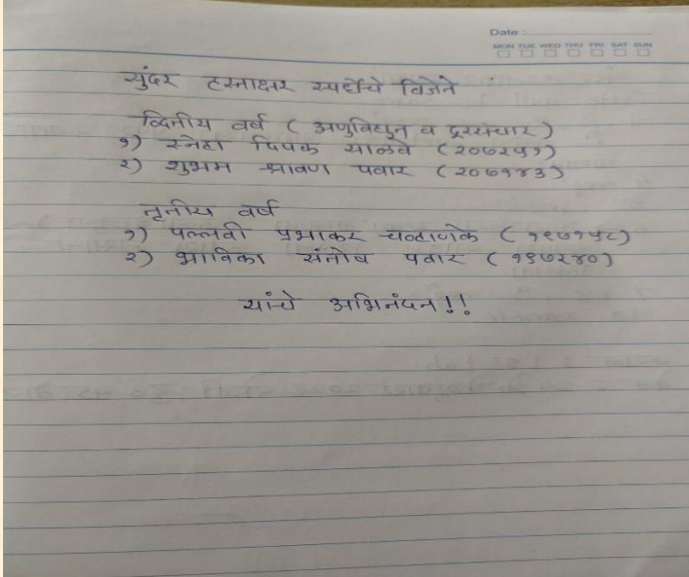 Date :
MON TUE WED THU FRI SAT SUN
सुंदर हस्ताक्षर स्पर्धेचे विजेते
द्वितीय वर्ष ( अणुविद्युत व दूरसंचार )
१) स्नेहा दिपक साळवे (२०७२५१)
२) शुभम श्रावण पवार (२०७१४३)
तृतीय वर्ष
१) पल्लवी प्रभाकर चव्हाणके ( १९७१५८)
२) भाविका संतोष पवार ( १९७२४०)
यांचे अभिनंदन!!